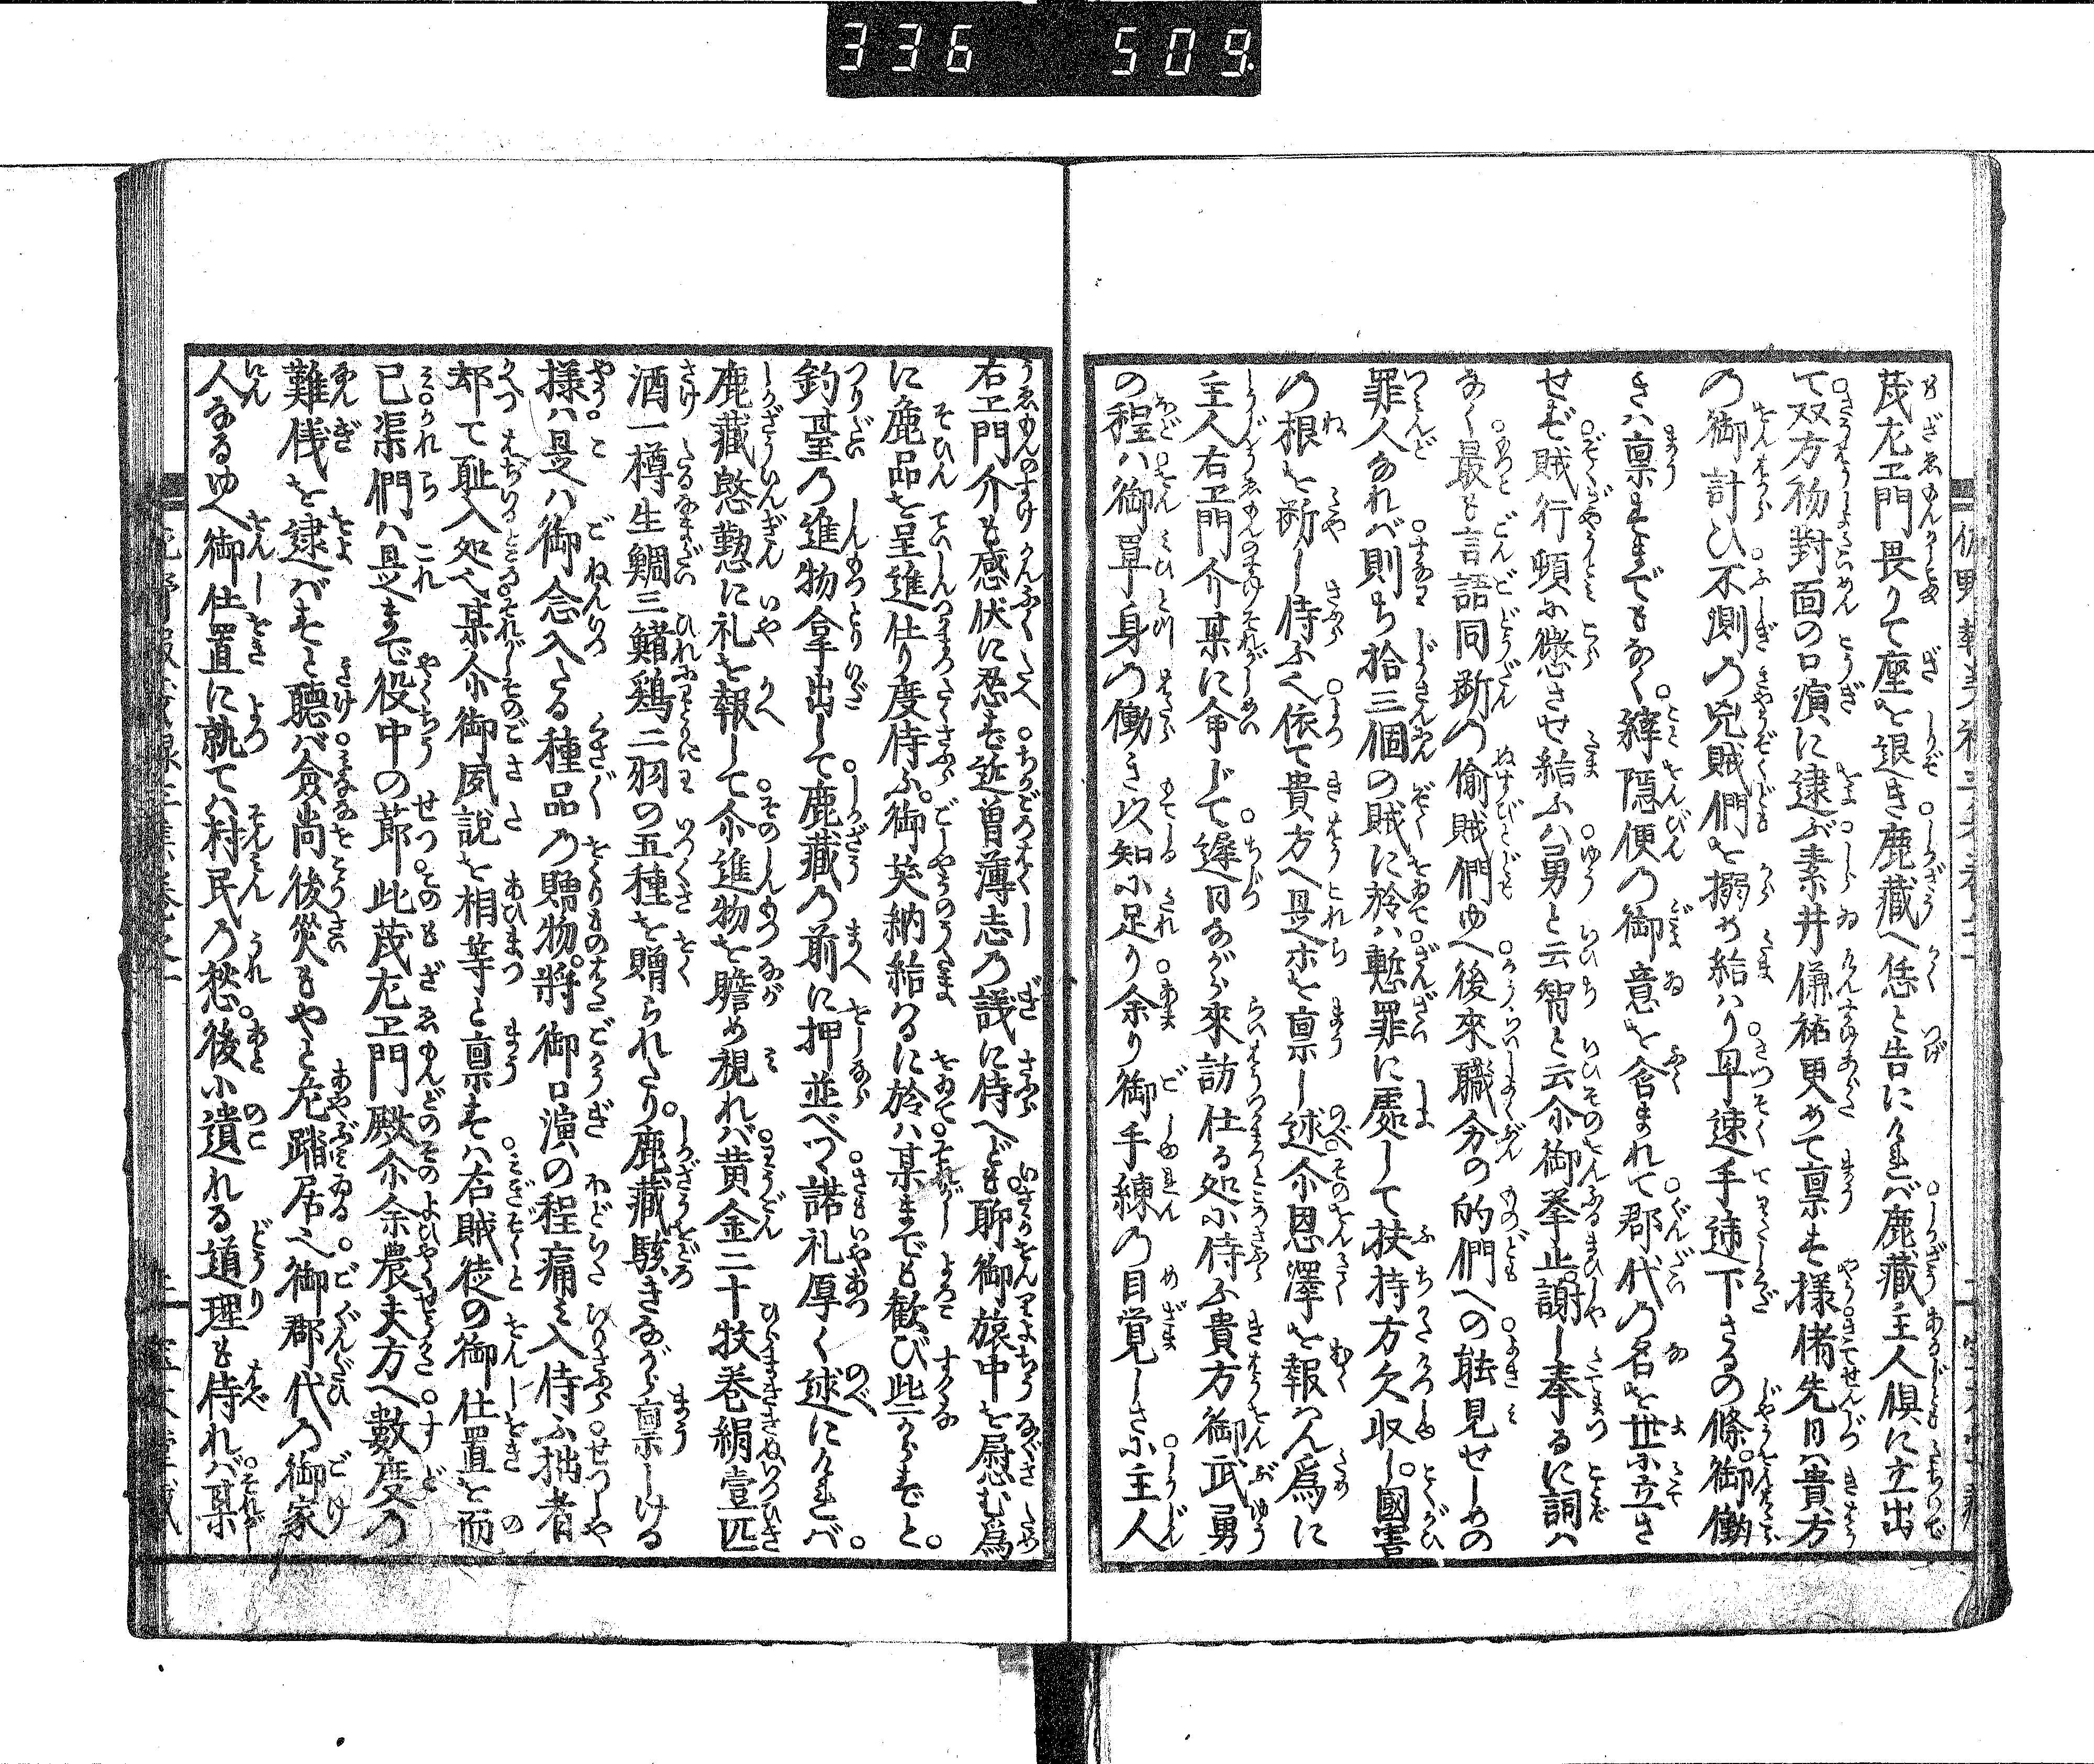 336 509
茂左エ門畏りて座を退き鹿藏へ恁と告にければ鹿藏主人倶に立出
て双方初對面の口演に逮ぶ素井傔祐更めて禀すは様偖先日は貴方
の御計ひ不測の兇賊們を搦め給はり早速手逓下さるの條御働
きは禀すまでもなく縡隠便の御意を含まれて郡代の名を世に立さ
せず賊行頓に懲させ給ふは勇と云智と云尒御挙止謝し奉るに詞は
なく最も言語同断の偸賊們ゆへ後來職分の的們への能見せしめの
罪人なれば則ち拾三個の賊に於は慙罪に處して扶持方欠取し國害
の根を断し侍ふ依て貴方へ是亦を禀し述尒恩澤を報はん為に
主人右エ門介某に命じて遅日ながら來訪仕る処に侍ふ貴方御武勇
の程は御單身の働き以知に足り余り御手練の目覚しさに主人
右エ門介も感伏に忍ず近曽薄志の議に侍へども聊御旅中を慰む為
に鹿品を呈進仕り度侍ふ御笑納給はるに於は某までも歓び些からずと
釣臺の進物拿出して鹿藏の前に押並べつゝ諾礼厚く述にければ
鹿藏慇懃に礼を報して尒進物を瞻め視れば黄金二十枚巻絹壹匹
酒一樽生鯛三鰭鶏二羽の五種を贈られたり鹿藏駭きながら禀しける
様は是は御念入たる種品の贈物將御口演の程痛み入侍ふ拙者
却て耻入処へ某尒御夙説を相等と禀すは右賊徒の御仕置を而
已渠們は是まで役中の莭此茂左エ門殿尒余農夫方へ數度の
難儀を逮ばすと聽ば僉尚後災もやと危踏居る御郡代の御家
人なるゆへ御仕置に執ては村民の愁後に遺れる道理も侍れば某